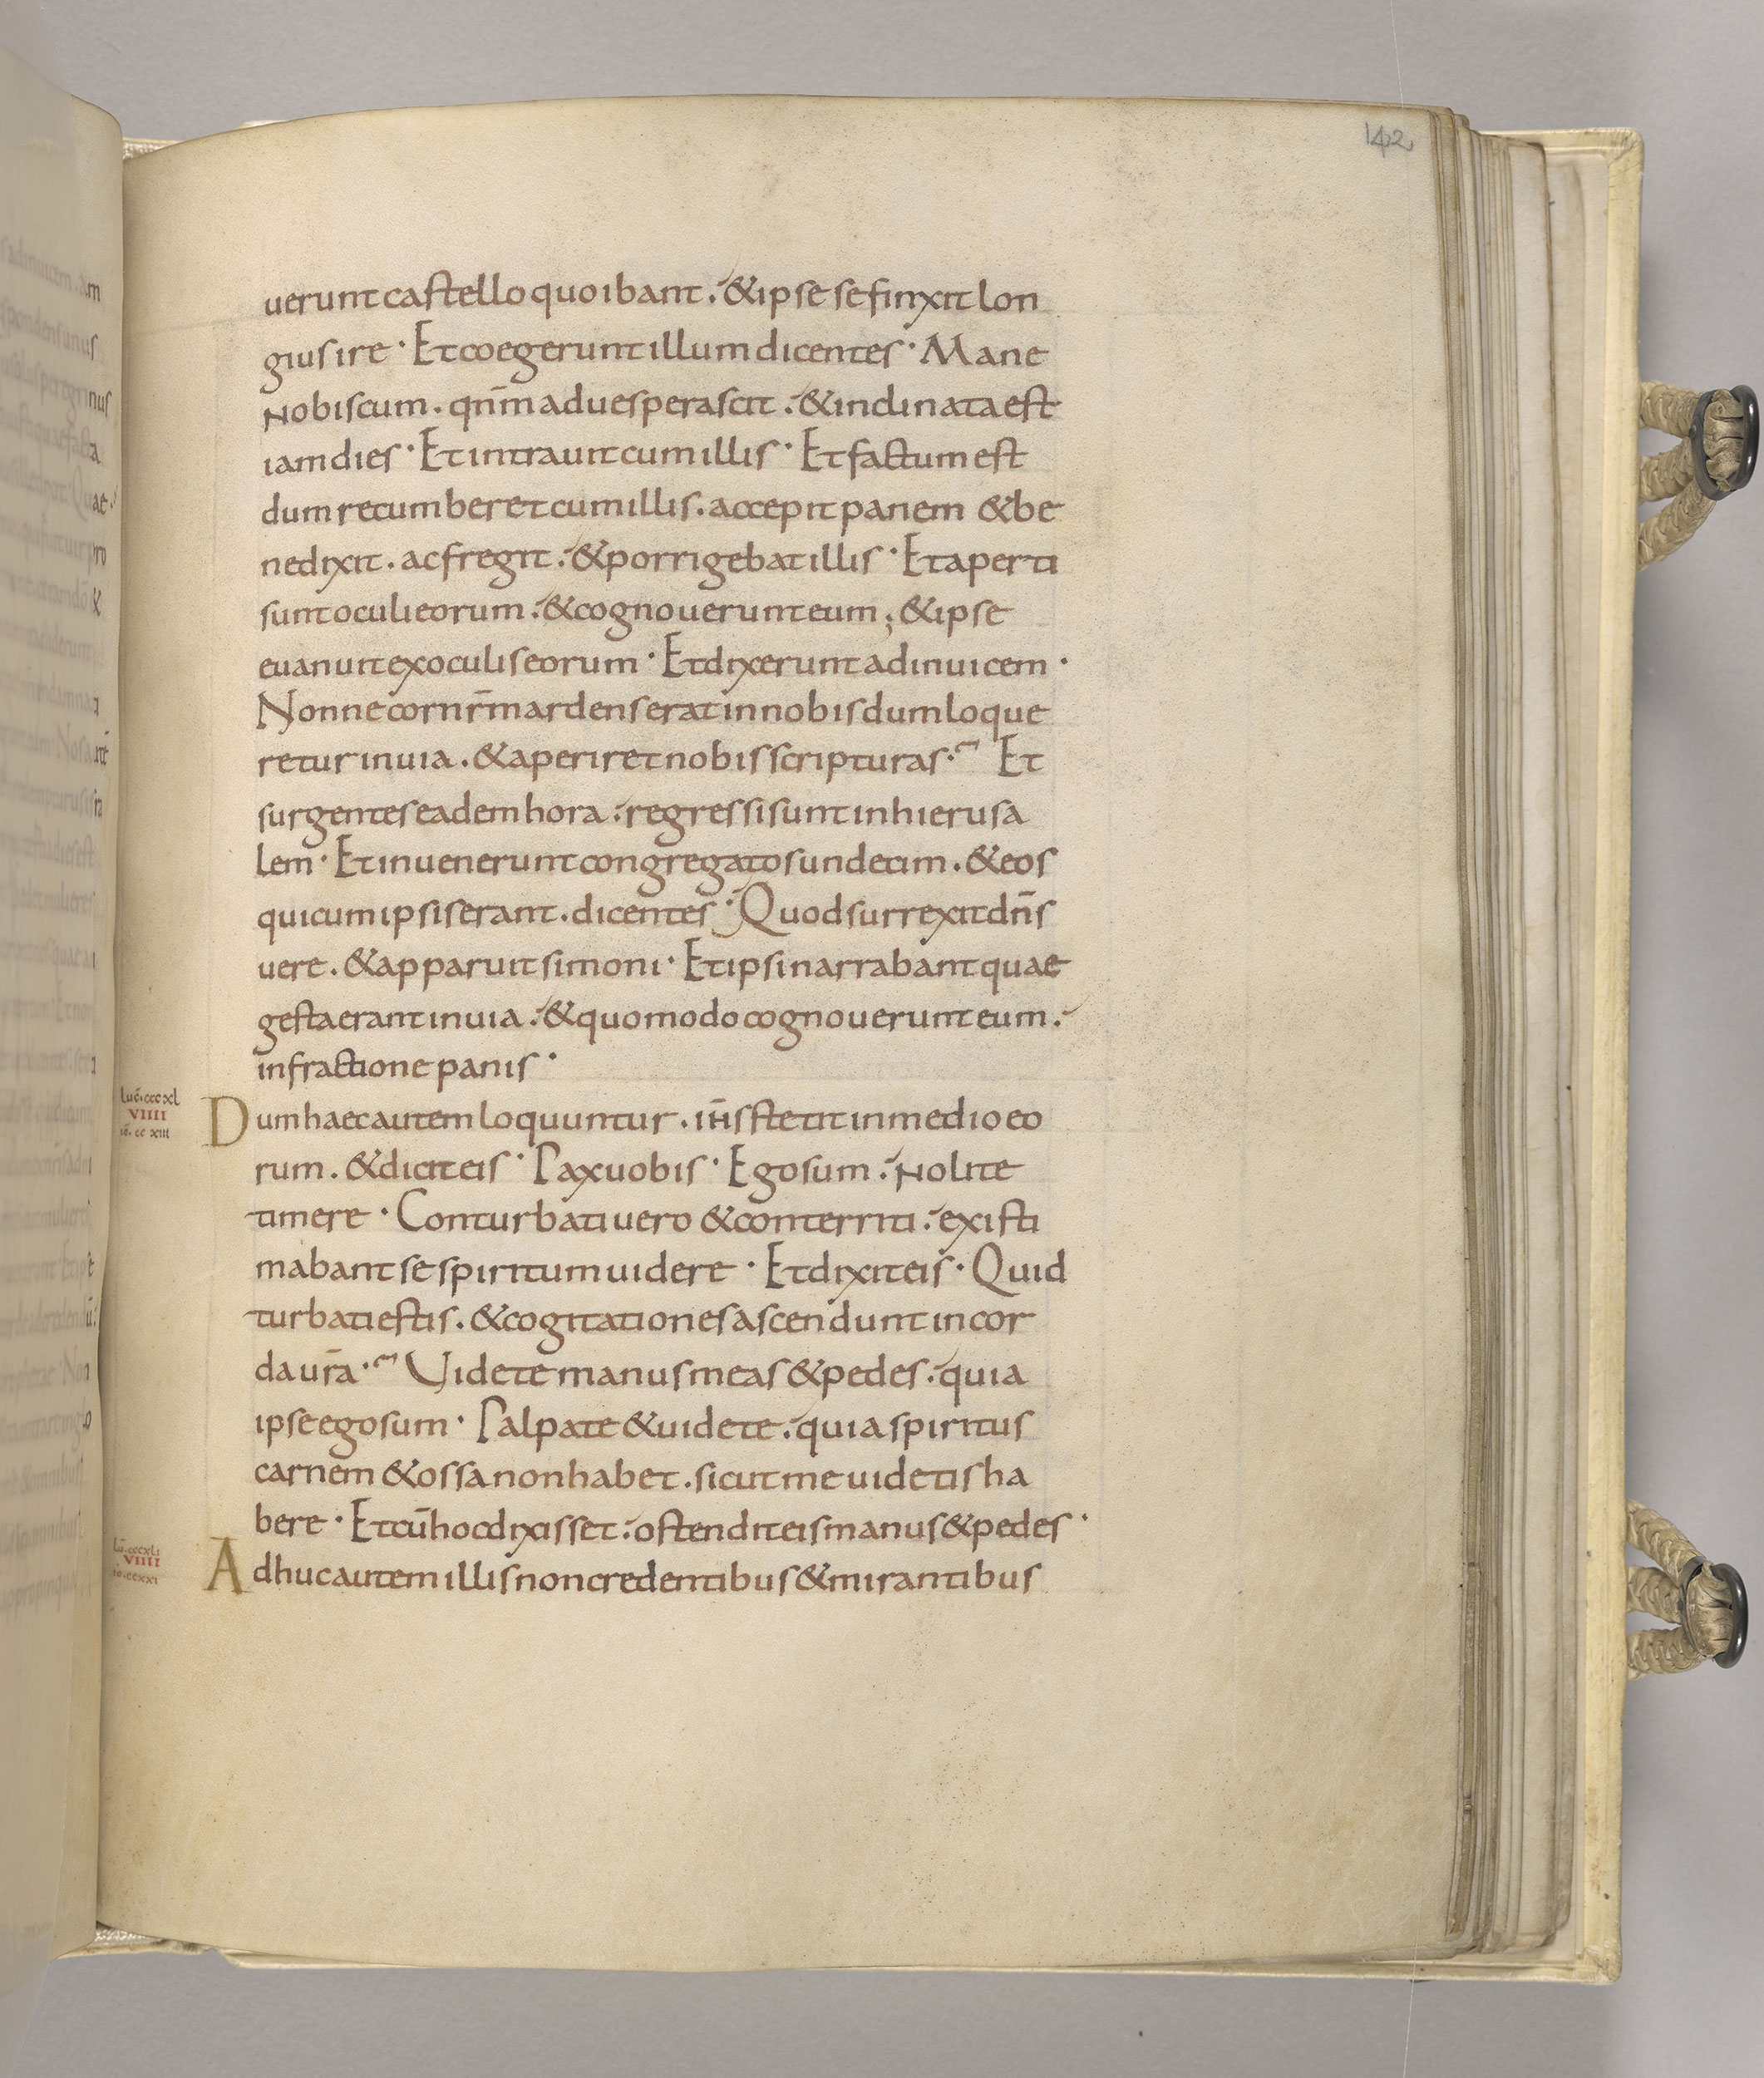 142
uerunt castello quo ibant . & ipse se finxit lon
gius ire · Et coegerunt illum dicentes · Mane
nobiscum . qn̄m aduesperascit . & inclinata est
iam dies · Et intrauit cum illis · Et factum est
dum recumberet cum illis . accepit panem & be
nedixit . ac fregit . & porrigebat illis · Et aperti
sunt oculi eorum . & cognouerunt eum ; & ipse
euanuit ex oculis eorum · Et dixerunt ad inuicem ·
Nonne cor nr̄m ardens erat in nobis dum loque
retur in uia . & aperiret nobis scripturas ·~ Et
surgentes eadem hora . regressi sunt in hierusa
lem · Et inuenerunt congregatos undecim . & eos
qui cum ipsis erant . dicentes · Quod surrexit dn̄s
uere . & apparuit simoni · Et ipsi narrabant quae
gesta erant in uia . & quomodo cognouerunt eum .
in fractione panis ·
luc̄ . cccxl
VIIII
iō . cc xiii
Dum haec autem loquuntur . ih̄s stetit in medio eo
rum . & dicit eis · Pax uobis · Ego sum . nolite
timere · Conturbati uero & conterriti . existi
mabant se spiritum uidere · Et dixit eis · Quid
turbati estis . & cogitationes ascendunt in cor
da ur̄a ·~ Uidete manus meas & pedes . quia
ipse ego sum · Palpate & uidete . quia spiritus
carnem & ossa non habet . sicut me uidetis ha
bere · Et cū hoc dixisset . ostendit eis manus & pedes ·
lū . cccxli
VIIII
iō . ccxxi
Adhuc autem illis non credentibus & mirantibus